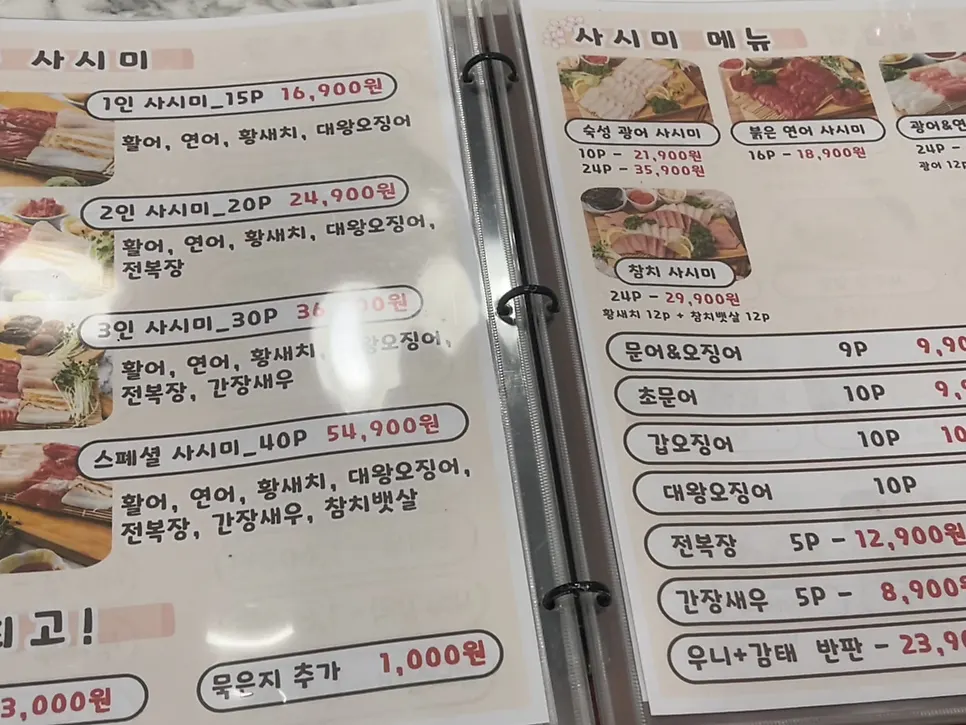 사시미
1인 사시미_15P 16,900원
활어, 연어, 황새치, 대왕오징어
2인 사시미_20P 24,900원
활어, 연어, 황새치, 대왕오징어,
전복장
3인 사시미_30P
활어, 연어, 황새치, 대왕오징어,
전복장, 간장새우
스페셜 사시미_40P 54,900원
활어, 연어, 황새치, 대왕오징어,
전복장, 간장새우, 참치뱃살
최고!
3,000원
묵은지 추가 1,000원
사시미 메뉴
숙성 광어 사시미
10P - 21,900원
24P - 35,900원
붉은 연어 사시미
16P - 18,900원
광어&연
24P -
광어 12p
참치 사시미
24P - 29,900원
황새치 12p + 참치뱃살 12p
문어&오징어 9P 9,90
초문어 10P 9,9
갑오징어 10P 10
대왕오징어 10P
전복장 5P - 12,900원
간장새우 5P - 8,900원
우니+감태 반판 - 23,90